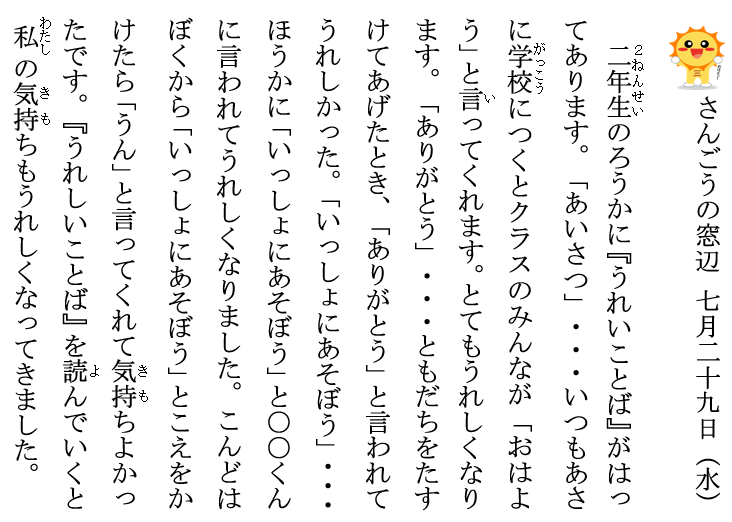 さんごうの窓辺 七月二十九日（水）
二年生のろうかに『うれいことば』がはっ
てあります。「あいさつ」・・・いつもあさ
に学校につくとクラスのみんなが「おはよ
う」と言ってくれます。とてもうれしくなり
ます。「ありがとう」・・・ともだちをたす
けてあげたとき、「ありがとう」と言われて
うれしかった。「いっしょにあそぼう」・・・
ほうかに「いっしょにあそぼう」と〇〇くん
に言われてうれしくなりました。こんどは
ぼくから「いっしょにあそぼう」とこえをか
けたら「うん」と言ってくれて気持ちよかっ
たです。『うれしいことば』を読んでいくと
私の気持ちもうれしくなってきました。